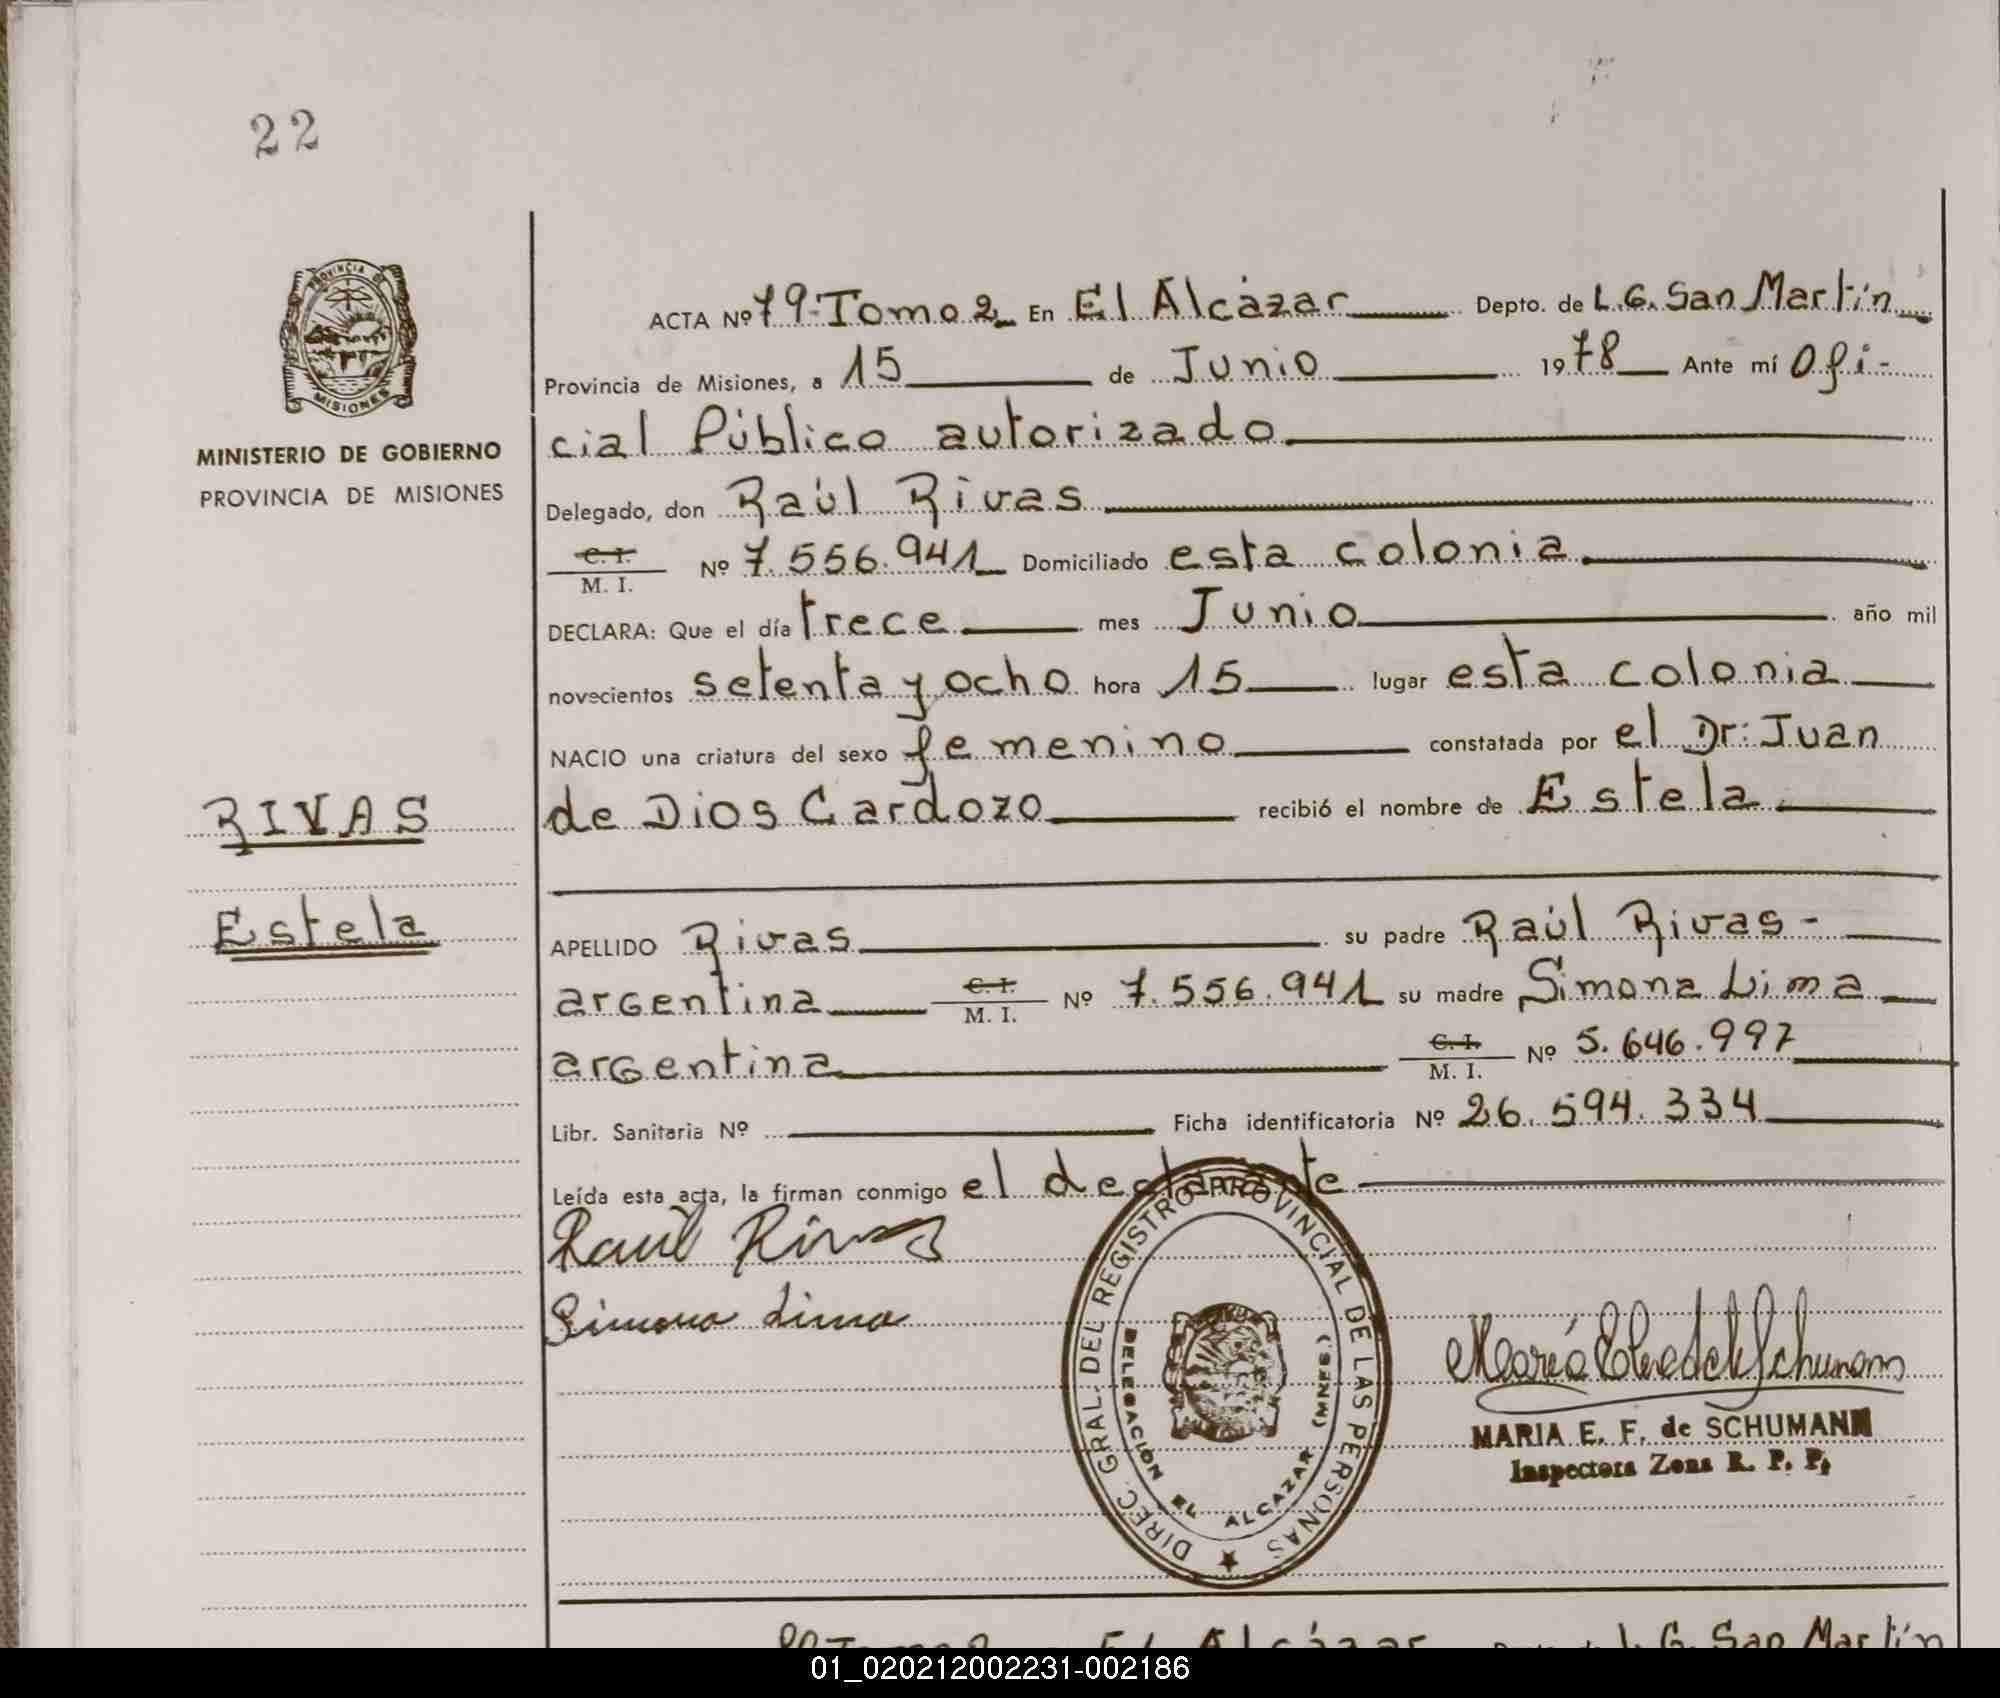 22
PROVINCIA DE
MISIONES
MINISTERIO DE GOBIERNO
PROVINCIA DE MISIONES
ACTA Nº 79-Tomo 2 En El Alcázar Depto. de L.G. San Martín
Provincia de Misiones, a 15 de Junio 1978 Ante mí Ofi-
cial Público autorizado
Delegado, don Raúl Rivas
C. I.
M. I. Nº 7.556.941 Domiciliado esta colonia
DECLARA: Que el día trece mes Junio año mil
novecientos setenta y ocho hora 15 lugar esta colonia
NACIO una criatura del sexo femenino constatada por el Dr: Juan
de Dios Cardozo recibió el nombre de Estela
RIVAS
Estela
APELLIDO Rivas su padre Raúl Rivas-
argentina C. I. M. I. Nº 7.556.941 su madre Simona Lima
argentina C. I. M. I. Nº 5.646.997
Libr. Sanitaria Nº Ficha identificatoria Nº 26.594.334
Leída esta acta, la firman conmigo el declarante
Raul Rivas
Simona Lima
DIREC. GRAL. DEL REGISTRO PROVINCIAL DE LAS PERSONAS
DELEGACION EL ALCAZAR (MNES.)
María de Schumann
MARIA E. F. de SCHUMANN
Inspectora Zona R. P. P.
80 Tomo 2 El Alcázar Depto. de L.G. San Martín
01_020212002231-002186